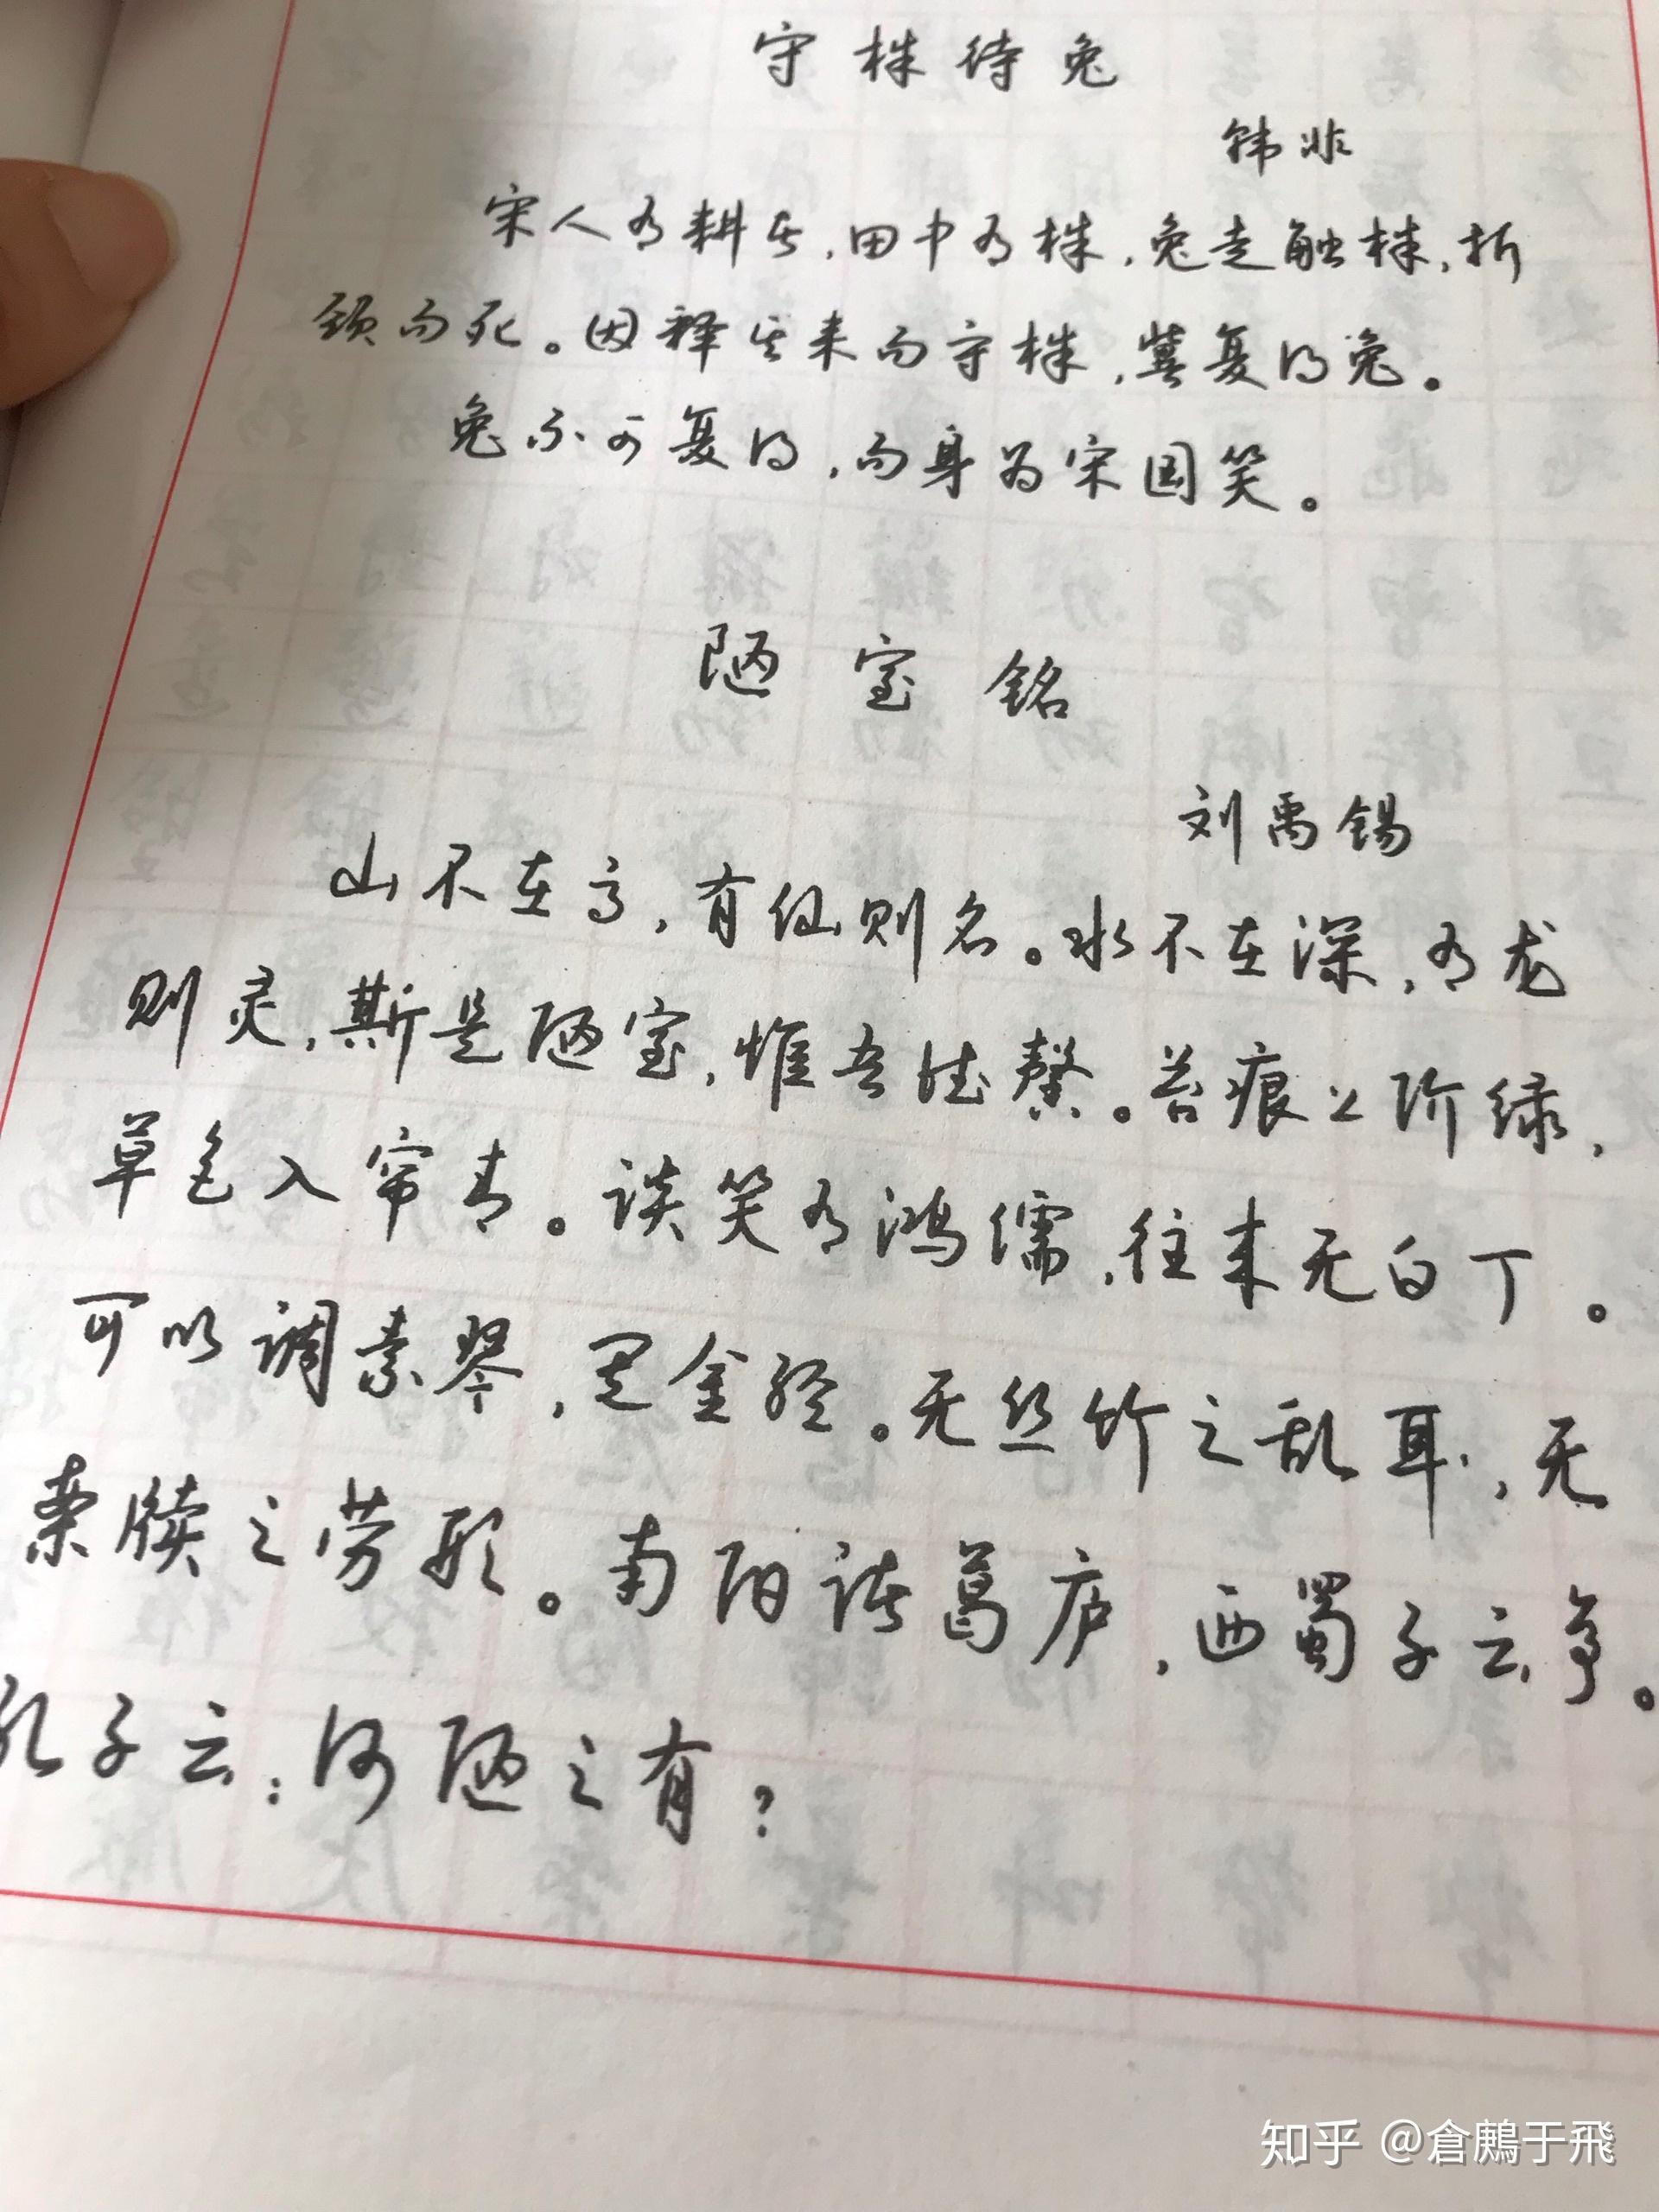 守株待兔
韩非
宋人有耕者,田中有株,兔走触株,折
颈而死。因释其耒而守株,冀复得兔。
兔不可复得,而身为宋国笑。
陋室铭
刘禹锡
山不在高,有仙则名。水不在深,有龙
则灵,斯是陋室,惟吾德馨。苔痕上阶绿,
草色入帘青。谈笑有鸿儒,往来无白丁。
可以调素琴,阅金经。无丝竹之乱耳,无
案牍之劳形。南阳诸葛庐,西蜀子云亭。
孔子云:何陋之有?
知乎 @倉鷓于飛